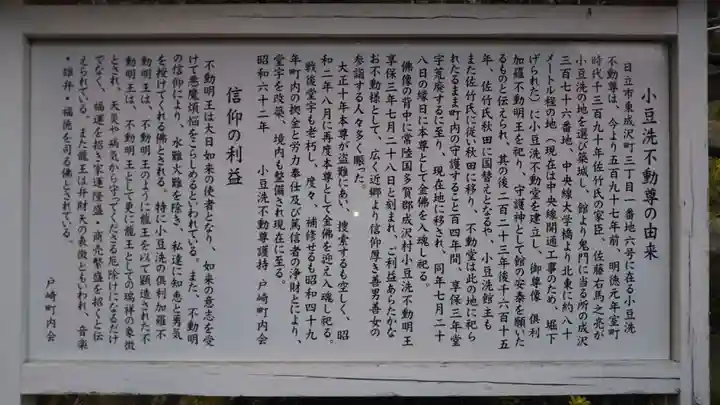 小豆洗不動尊の由来
日立市東成沢町三丁目一番地六号に在る小豆洗
不動尊は、今より五百九十七年前、明徳元年室町
時代千三百九十年佐竹氏の家臣、佐藤右馬之亮が
小豆洗の地を選び築城し、館より鬼門に当る所の成沢
三百七十六番地、中央線大学橋より北東に約八十
メートル程の地（現在は中央線開通工事のため、堀下
げられた）に小豆洗不動堂を建立し、御尊像 倶利
加羅不動明王を祀り、守護神として館の安泰を願いた
るものと伝えられ、其の後二百二十三年後千六百十五
年、佐竹氏秋田に国替えとなるや、小豆洗館主も
また佐竹氏に従い秋田に移り、不動堂は此の地に祀ら
れたるまま町内の守護すること百四年間、享保三年堂
字荒廃するに至り、現在地に移され、同年七月二十
八日の縁日に本尊として金佛を入魂し祀る。
佛像の背中に常陸国多賀郡成沢村小豆洗不動明王
享保三年七月二十八日と刻まれ、ご利益あらたかな
お不動様として、広く近郷より信仰厚き善男善女の
参詣する人々多く賑った。
大正十年本尊が盗難にあい、捜索するも空しく、昭
和二年八月に再度本尊として金佛を迎え入魂し祀る。
戦後堂宇も老朽し、度々、補修せるも昭和四十九
年町内の拠金と労力奉仕及び篤信者の浄財とにより、
堂宇を改築、境内も整備され現在に至る。
昭和六十二年 小豆洗不動尊護持 戸崎町内会
信仰の利益
不動明王は大日如来の使者となり、如来の意志を受
けて悪魔煩悩をこらしめるといわれている。また、不動明
の信仰により、水難火難を除き、私達に知恵と勇気
を授けてくれる佛とされる。特に小豆洗の倶利加羅不
動明王は、不動明王のように龍王を以て顕造された不
動明王は、不動明王として更に龍王としての瑞祥の象徴
とされ、天災や病気から守ってくださる厄除けになるだけ
でなく、福運を招き家運隆盛・商売繁盛を招くと伝
えられている。また龍王は弁財天の象徴ともいわれ、音楽
・雄弁・福徳を司る佛とされている。
戸崎町内会